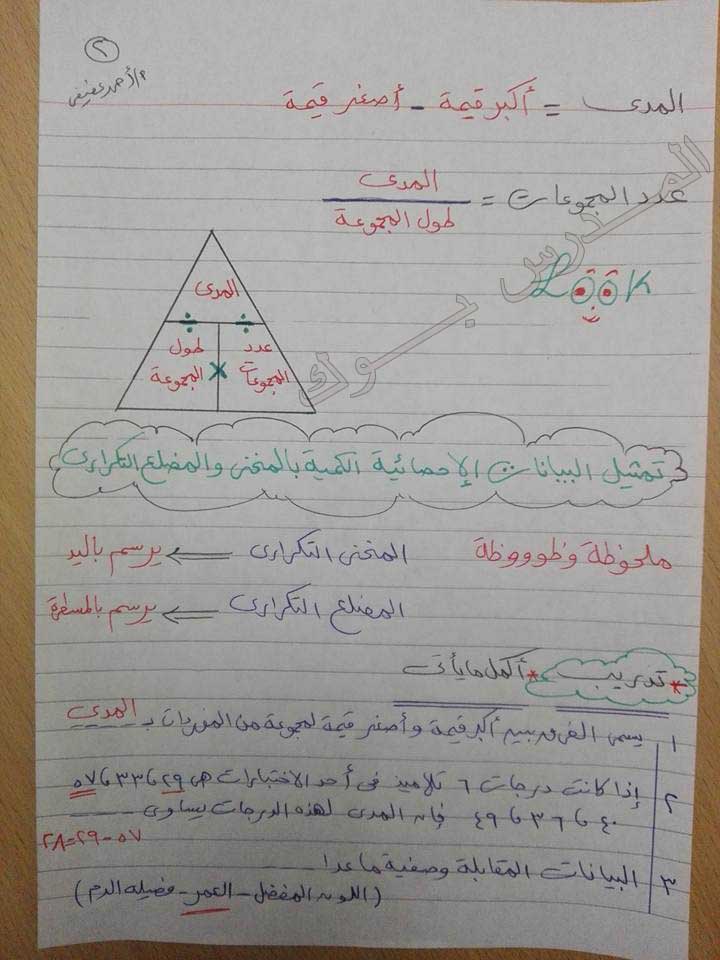 ٢
م/أحمد عفيفى
المدى = أكبر قيمة - أصغر قيمة
عدد المجموعات = المدى / طول المجموعة
المــدرس بــوك
Look
المدى
÷ ÷
طول المجموعة × عدد المجموعات
تمثيل البيانات الإحصائية الكمية بالمنحنى والمضلع التكرارى
ملحوظة وظووووظة المنحنى التكرارى ← يرسم باليد
المضلع التكرارى ← يرسم بالمسطرة
* تدريب * أكمل مايأتى
١ يسمى الفرق بين أكبر قيمة وأصغر قيمة لمجموعة من المفردات بـ المدى
٢ إذا كانت درجات ٦ تلاميذ فى أحد الاختبارات هى ٢٩ ، ٣٣ ، ٥٧
٤٠ ، ٣٦ ، ٤٩ فإن المدى لهذه الدرجات يساوى
٥٧ - ٢٩ = ٢٨
٣ البيانات المقابلة وصفية ماعدا ...
(اللون المفضل - العمر - فصيلة الدم)